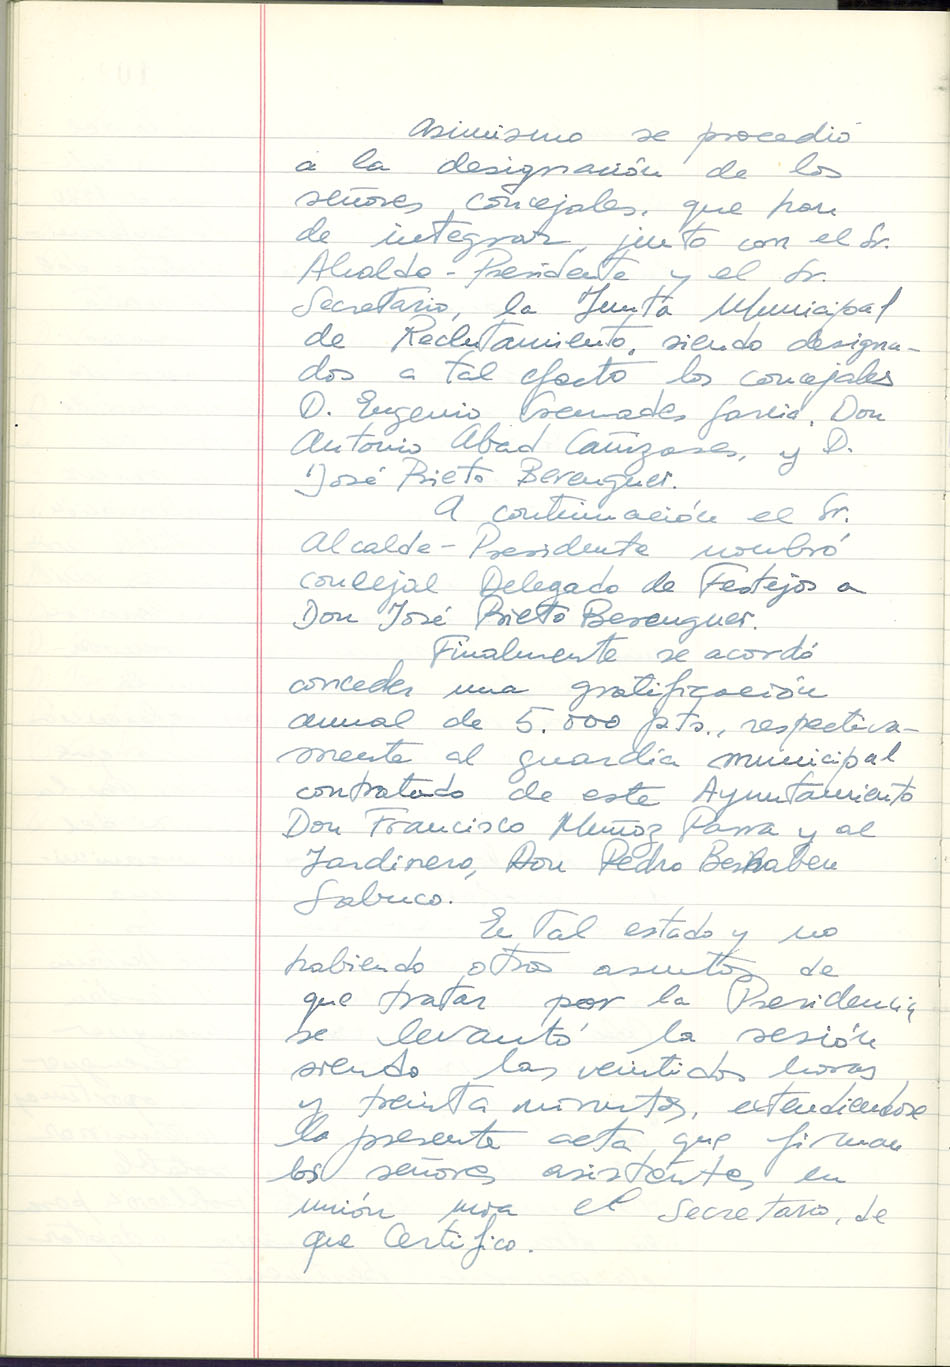 Asimismo se procedió
a la designación de los
señores concejales, que han
de integrar, junto con el Sr.
Alcalde-Presidente y el Sr.
Secretario, la Junta Municipal
de Reclutamiento, siendo designa-
dos a tal efecto los concejales
D. Eugenio García, Don
Antonio Abad Cañizares, y D.
José Prieto Berenguer.
A continuación el Sr.
Alcalde-Presidente nombró
concejal Delegado de Festejos a
Don José Prieto Berenguer.
Finalmente se acordó
conceder una gratificación
anual de 5.000 pts., respectiva-
mente al guardia municipal
contratado de este Ayuntamiento
Don Francisco Muñoz Parra y al
Jardinero, Don Pedro
Sabuco.
En tal estado y no
habiendo otros asuntos de
que tratar por la Presidencia
se levantó la sesión
siendo las veintidos horas
y treinta minutos, extendiendose
la presente acta que firman
los señores asistentes en
unión mia el Secretario, de
que Certifico.